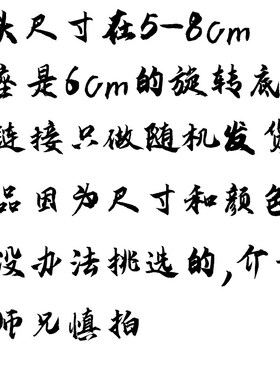 头尺寸在5-8cm
座是6cm的旋转底
链接只做随机发货
品因为尺寸和颜色
没办法挑选的,介
师兄慎拍